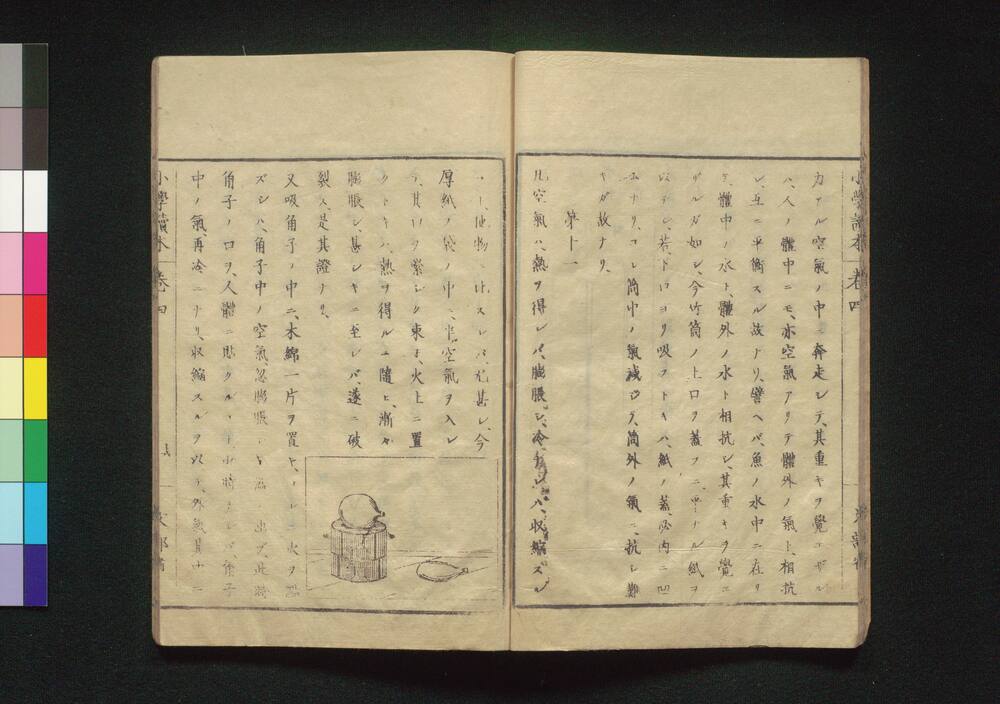 小學讀本 卷四
力アル空氣ノ中ニ奔走シテ、其重キヲ覺エザル
ハ、人ノ體中ニモ、亦空氣アリテ體外ノ氣ト、相抗
シ、互ニ平衡スル故ナリ、譬ヘバ、魚ノ水中ニ在リ
テ、體中ノ水ト、體外ノ水ト相抗シ、其重キヲ覺エ
ザルガ如シ、今竹筒ノ上口ヲ蓋フニ、單ナル紙ヲ
以テシ、若、下口ヨリ吸フトキハ、紙ノ蓋、必内ニ凹
ムナリ、コレ筒中ノ氣減ジテ、筒外ノ氣ニ、抗シ難
キガ故ナリ、
第十一
凡空氣ハ、熱ヲ得レバ、膨脹シ、冷ナレバ、收縮スル
他物ニ比スレバ、尤甚シ、今
厚紙ノ袋ノ中ニ、半空氣ヲ入レ
テ、其口ヲ緊シク束ネ、火上ニ置
クトキハ、熱ヲ得ルニ隨ヒ、漸々
膨脹シ、甚シキニ至レバ、遂ニ破
裂ス、是其證ナリ、
又吸角子ノ中ニ、木綿一片ヲ置キ、コレニ火ヲ
ズレハ、角子中ノ空氣、忽膨脹シ 出ヅ、此時
角子ノ口ヲ、人體ニ貼クル、 小時 角子
中ノ氣、再冷ニナリ、收縮スルヲ以テ、外氣其中ニ
小學讀本 卷四 文部省